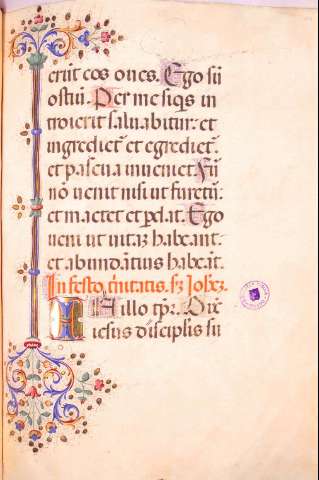 erūt eos oues. Ego sū
ostiū. Per me siq̄s in
troierit saluabitur: et
ingrediet᷑ et egrediet᷑
et pascua inueniet. Fū
nō uenit nisi ut furetur:
et mactet et p̄dat. Ego
ueni ut uitaʒ habeant:
et abundātius habeāt.
In festo t̄nitatis. s̄ʒ Iohēʒ
IN illo tp̄r. Dix̄
iesus discip̄lis su